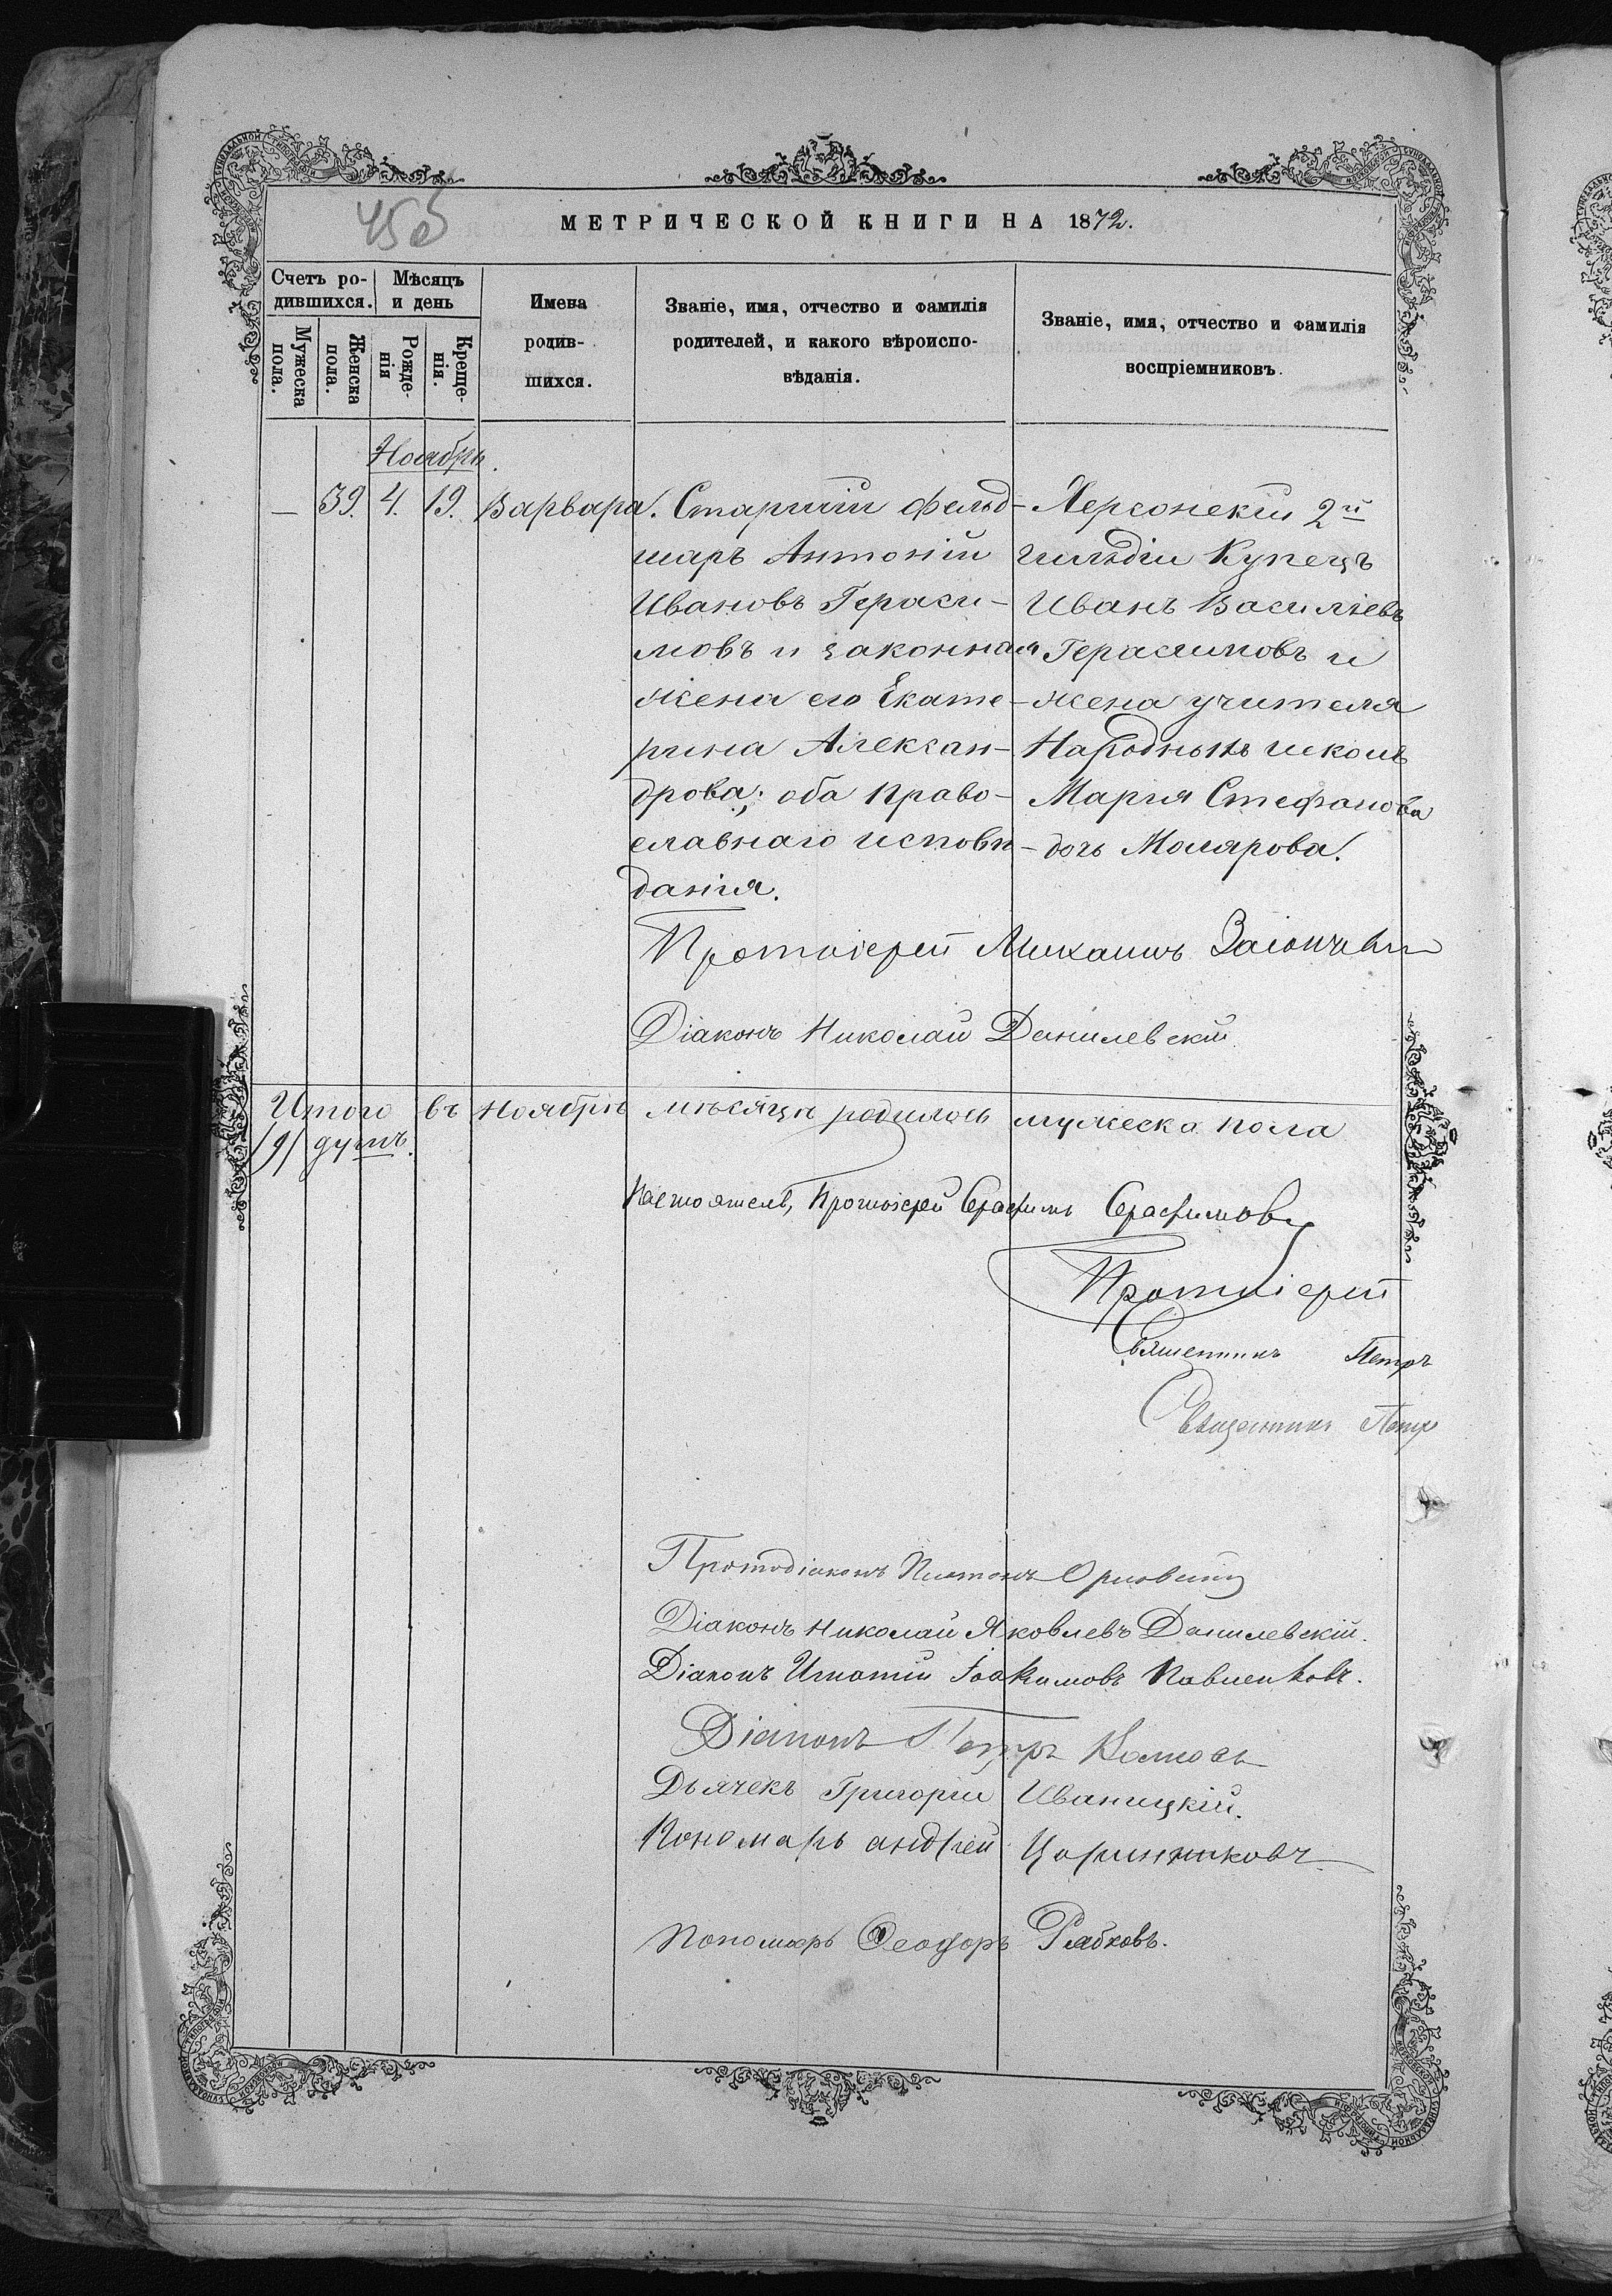 45об
МЕТРИЧЕСКОЙ КНИГИ НА 1872.
Счетъ ро-
дившихся.
Мужеска пола.
Женска пола.
Мѣсяцъ
и день
Рожде-
нія
Креще-
нія.
Имена
родив-
шихся.
Званіе, имя, отчество и фамилія
родителей, и какого вѣроиспо-
вѣданія.
Званіе, имя, отчество и фамилія
воспріемниковъ.
Ноябрь.
— 39. 4. 19. Варвара.
Старшій фельд-
шаръ Антоній
Ивановъ Гераси-
мовъ и законная
жена его Екате-
рина Алексан-
дрова; оба право-
славнаго исповѣ-
данія.
Херсонскій 2й
гильдіи Купецъ
Иванъ Василіевъ
Герасимовъ и
жена учителя
Народныхъ школъ
Марія Стефанова
дочь Молярова.
Протоіерей Михаилъ
Діаконъ Николай Данилевскій
Итого въ Ноябрѣ мѣсяцѣ родилось мужеска пола
/9/ душъ.
Настоятель, Протоіерей Серафимъ Серафимовъ
Протоіерей
Священникъ Петръ
Священникъ Петръ
Протодіаконъ Платонъ Орловскій
Діаконъ Николай Яковлевъ Данилевскій.
Діаконъ Игнатій Іоакимовъ Павленковъ.
Діаконъ Петръ
Дьячекъ Григорій Иваницкій.
Пономарь Андрей
Пономарь Ѳеодоръ Рябковъ.